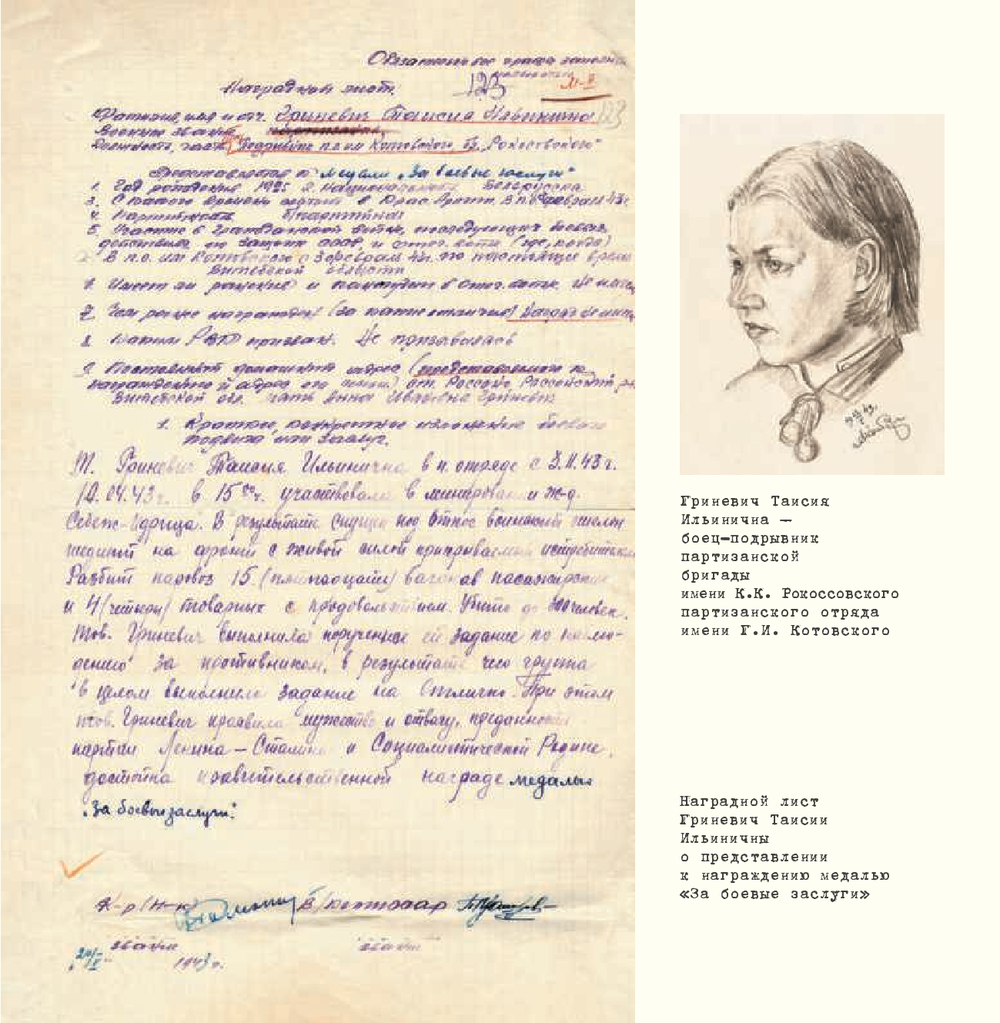 Наградной лист.
123
Фамилия, имя и отч. Гриневич Таисия Ильинична
Военное звание
Должность, часть им Котовского
Представляется к медали „За боевые заслуги"
1. Год рождения 1925 2. Национальность Белорусска
3. С какого времени состоит в Крас. Армии. В п.
4. Партийность
5. Участие в гражданской войне, последующих боевых
действиях по защите СССР, и отеч. войн (где, когда)
В п.о. им Котовского с по настоящее время
Витебской области
6. Имеет ли ранение и контузии в отеч. войне.
7. Чем ранее награжден (за какие отличия)
8. Каким РВК призван. Не призывалась
9. Постоянный домашний адрес (представляемого к
награждению и адрес его семьи)
Витебской обл. мать Анна Гриневич
1. Краткое, конкретное изложение боевого
подвига или заслуг.
Т. Гриневич Таисия Ильинична в п. отряде с 3.II.43 г.
10.04.43 г. в 15 00 ч. участвовала в минировании ж-д.
Себеж-Идрица. В результате спущен под откос воинский эшелон
на фронт с живой силой
Разбит паровоз 15 (пятнадцать) вагонов пассажирских
и 4 (четыре) товарных с продовольствием. Убито до человек.
Тов. Гриневич выполнила порученное ей задание по наблю-
дению за противником, в результате чего группа
в целом выполнила задание на Отлично. При этом
тов. Гриневич проявила мужество и отвагу, преданность
партии Ленина – Сталина и Социалистической Родине,
достойна правительственной награде медалью
„За боевые заслуги".
К-р (Н-к) В/комиссар
звание звание
1943 г.
Гриневич Таисия
Ильинична —
боец-подрывник
партизанской
бригады
имени К.К. Рокоссовского
партизанского отряда
имени Г.И. Котовского
Наградной лист
Гриневич Таисии
Ильиничны
о представлении
к награждению медалью
«За боевые заслуги»